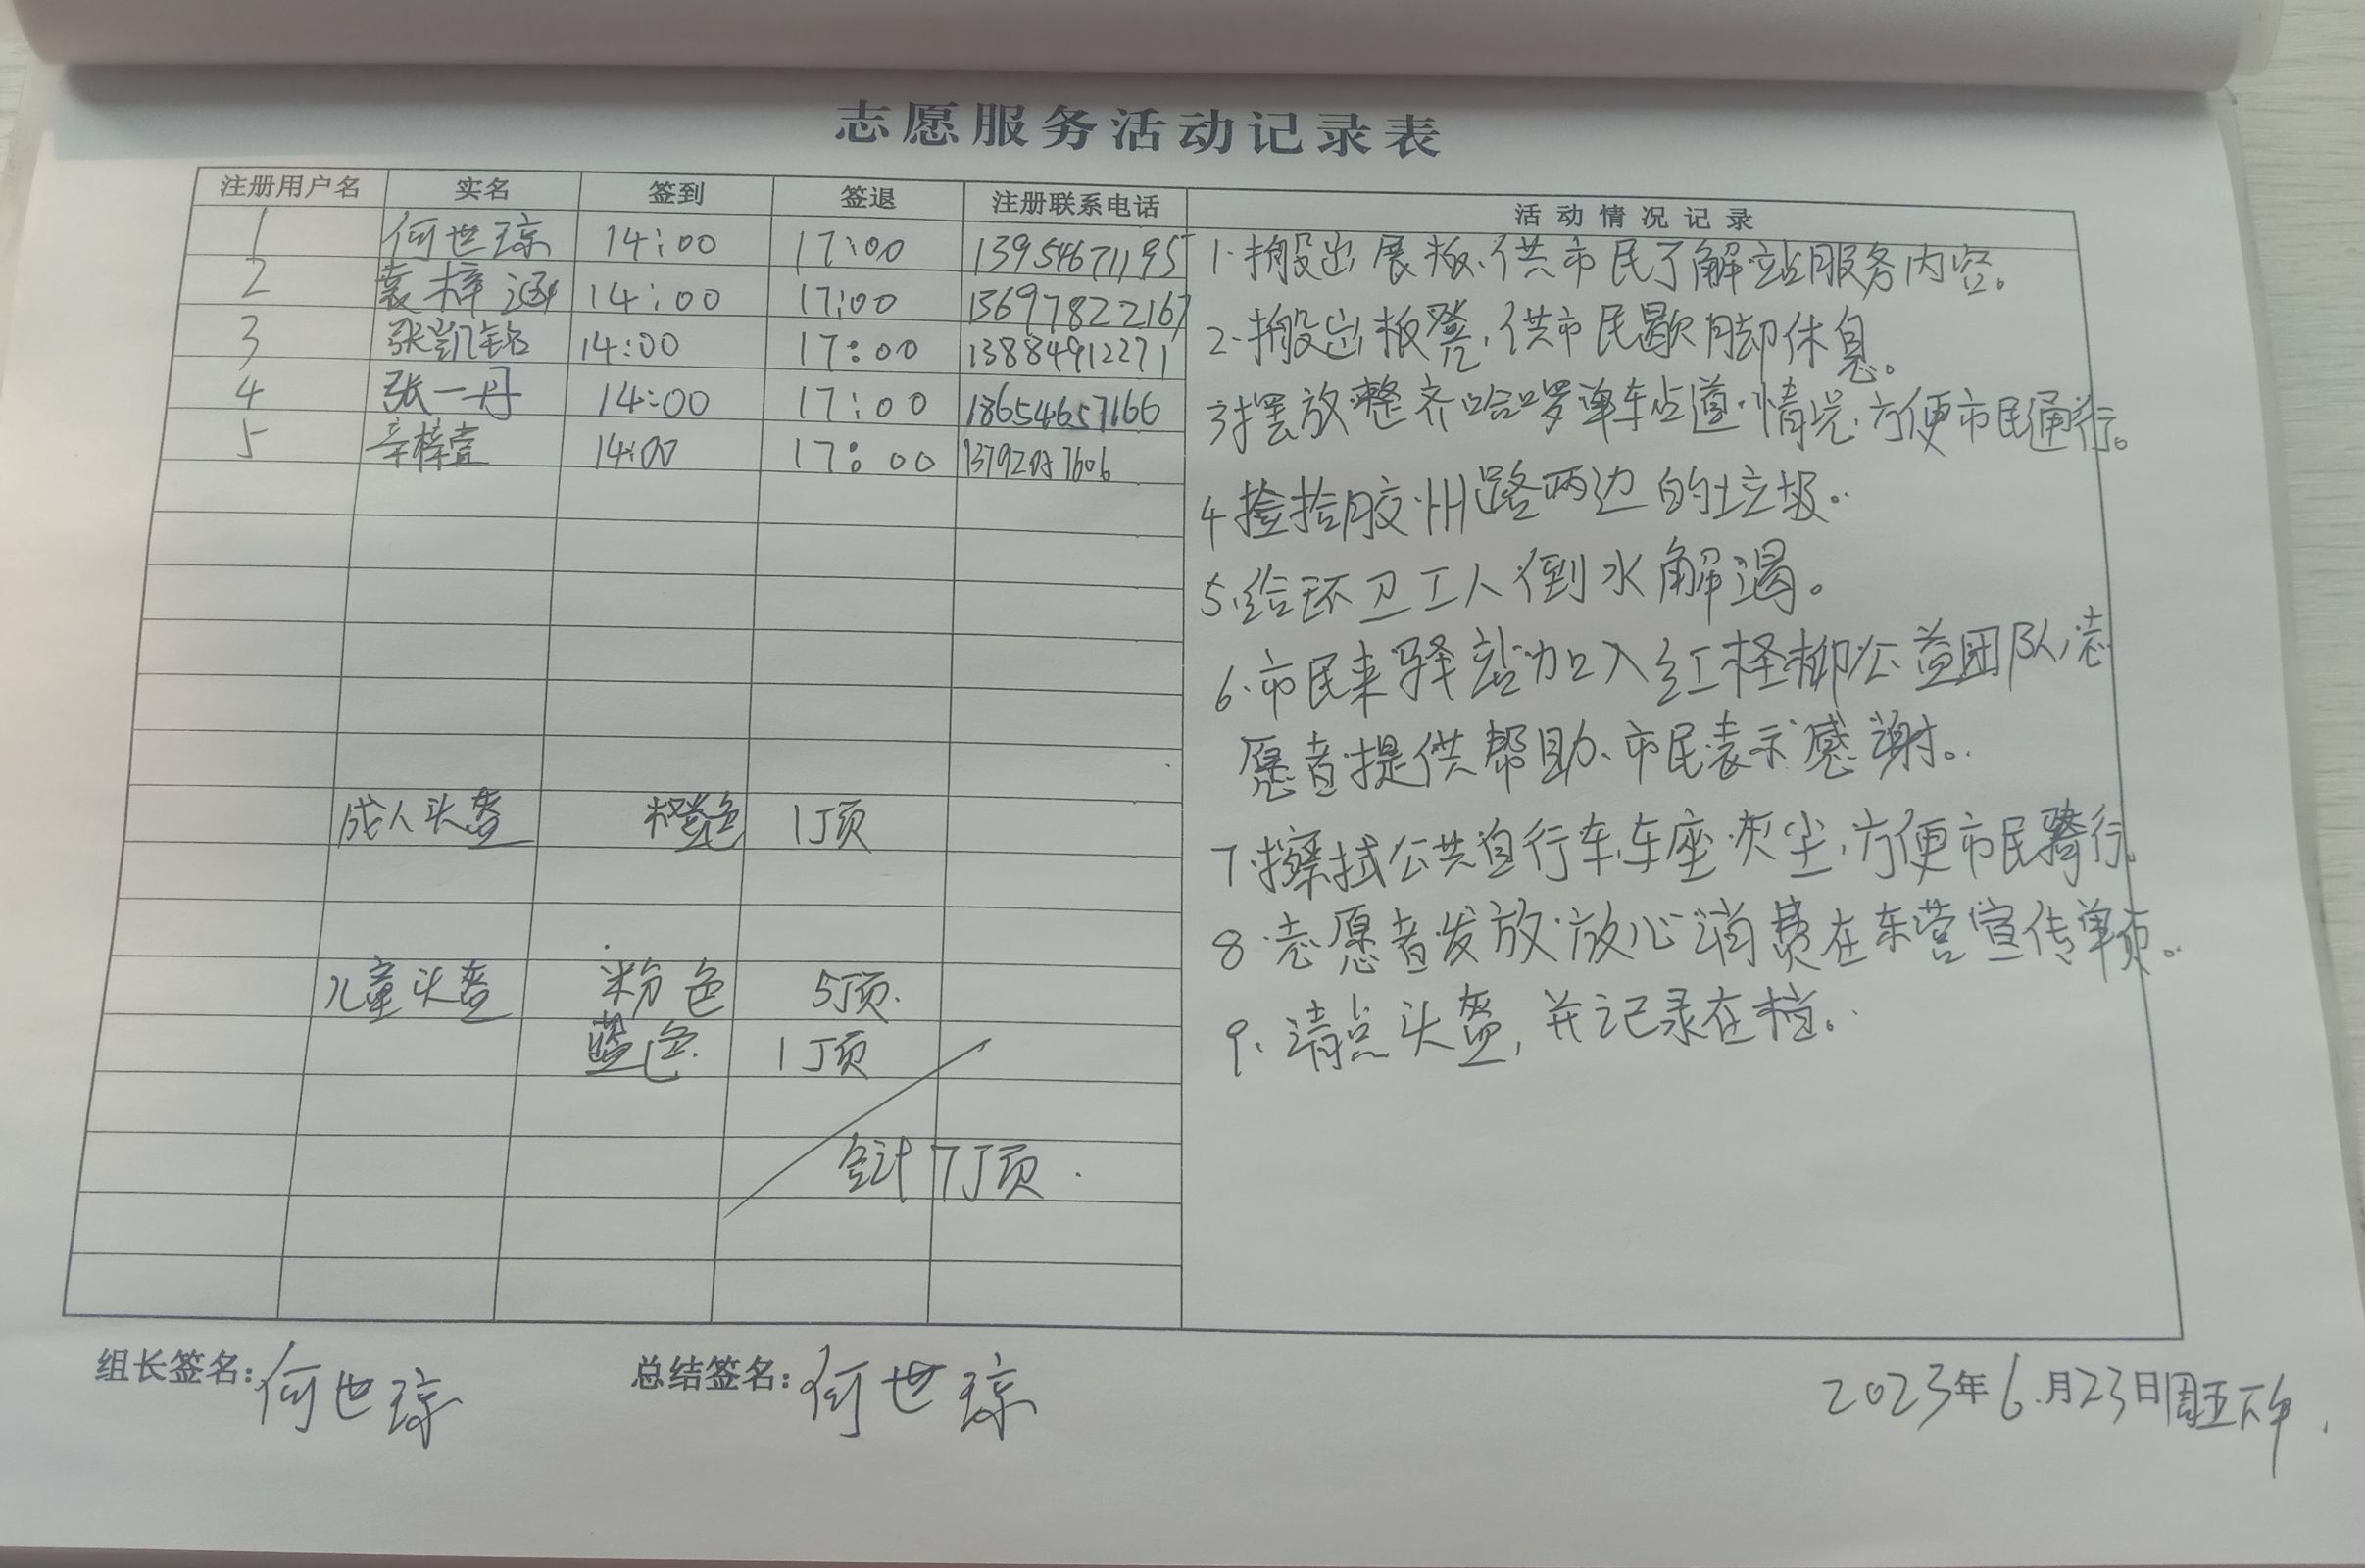 志愿服务活动记录表
注册用户名 实名 签到 签退 注册联系电话 活动情况记录
1 何世琼 14:00 17:00 13954671195
2 袁梓涵 14:00 17:00 13697822167
3 张凯铭 14:00 17:00 13884912271
4 张一丹 14:00 17:00 18654657166
5 辛梓萱 14:00 17:00
成人头盔 橙色 1顶
儿童头盔 粉色 5顶.
蓝色 1顶
合计 7顶.
1.搬出展板、供市民了解站服务内容。
2.搬出板凳,供市民歇脚休息。
3摆放整齐哈啰单车占道情况,方便市民通行。
4捡拾胶州路两边的垃圾。
5.给环卫工人倒水解渴。
6.市民来驿站加入红柽柳公益团队,志
愿者提供帮助、市民表示感谢。
7.擦拭公共自行车,车座灰尘,方便市民骑行。
8.志愿者发放放心消费在东营宣传单页。
9.清点头盔,并记录在档。
组长签名:何世琼 总结签名:何世琼 2023年6月23日周五下午.